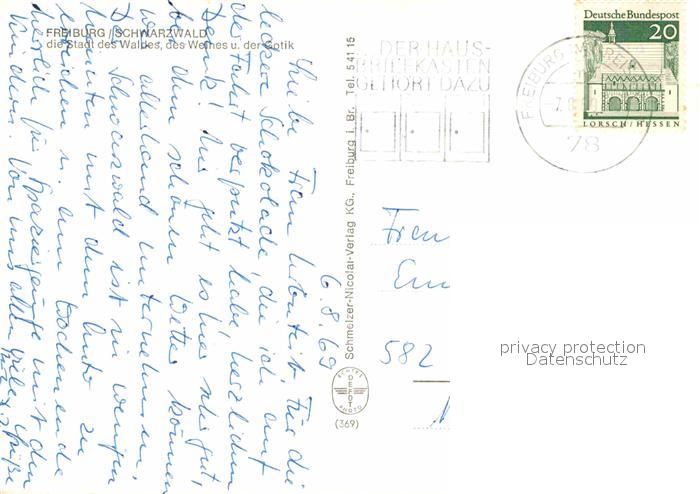 FREIBURG / SCHWARZWALD
die Stadt des Waldes, des Weines u. der Gotik
6.8.69
Liebe Frau für die
leckere Schokolade, die ich auf
der Fahrt verputzt habe, herzlichen
Dank! Mir geht es hier sehr gut,
bei dem schönen Wetter können
wir allerhand unternehmen.
Der Schwarzwald ist in wenigen
Minuten mit dem Auto zu
erreichen u. am Wochenende
herrlich für Spaziergänge mit den
Kindern. Von uns allen viele Grüße
Schmelzer-Nicolai-Verlag KG., Freiburg i. Br., Tel. 5 41 15
ECHTES
DEFOT
PHOTO
(369)
DER HAUS-
BRIEFKASTEN
GEHÖRT DAZU
FREIBURG IM BREIS
78
Deutsche Bundespost
20
LORSCH/HESSEN
Frau
582
privacy protection
Datenschutz